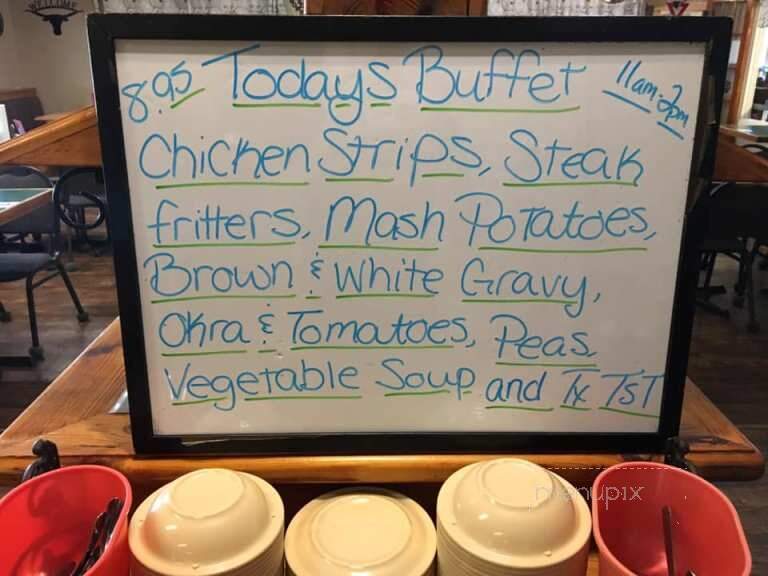 WELCOME
8.95 Todays Buffet 11am-2pm
Chicken Strips, Steak
fritters, Mash Potatoes,
Brown & White Gravy,
Okra & Tomatoes, Peas,
Vegetable Soup and Tx TsT
menupix